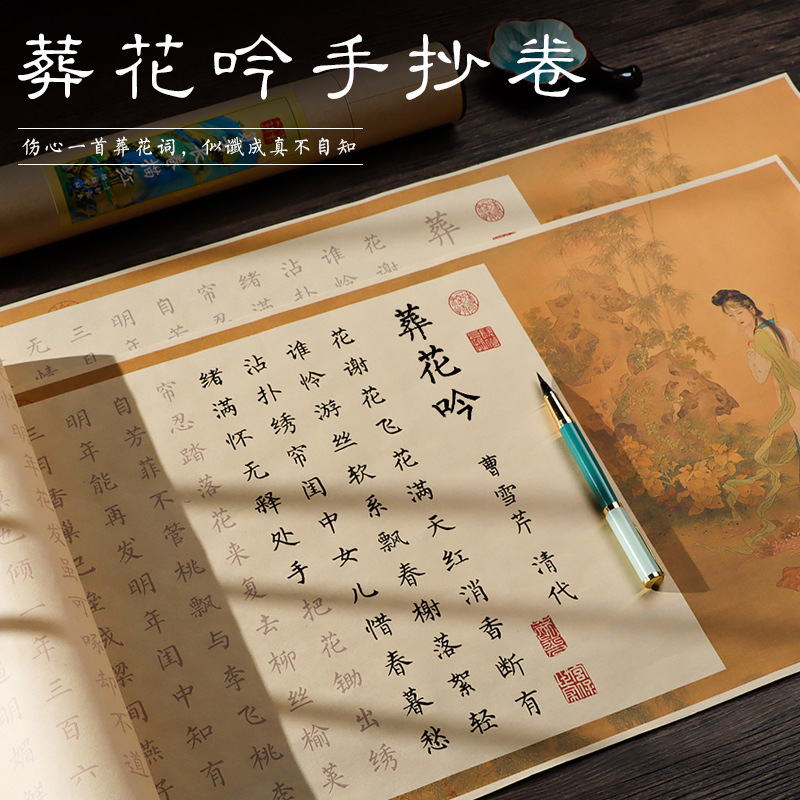 葬花吟手抄卷
伤心一首葬花词，似谶成真不自知
葬
花谢
谁怜
沾扑
绪满
帘忍
自
明年
三
无
葬花吟
曹雪芹 清代
花谢花飞花满天红消香断有
谁怜游丝软系飘春榭落絮轻
沾扑绣帘闺中女儿惜春暮愁
绪满怀无释处手把花锄出绣
帘忍踏落花来复去柳丝榆荚
自芳菲不管桃飘与李飞桃李
明年能再发明年闺中知有
三月香巢已垒成梁间燕子
年花发虽可啄却不道
巢也倾一年三百六
明媚鲜